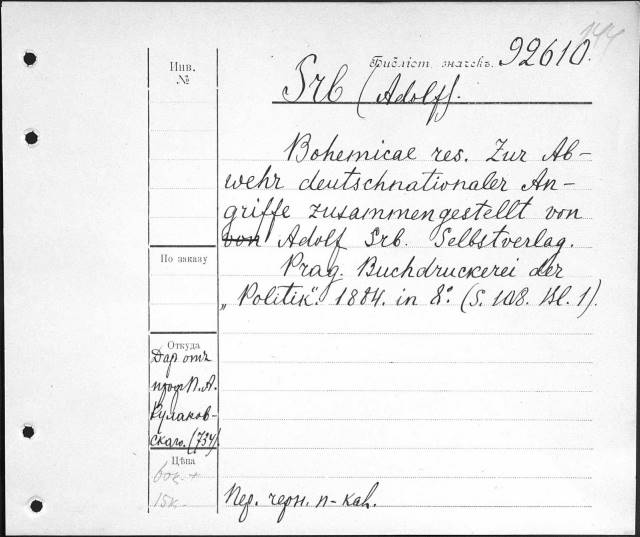 144
Библіот. значекъ. 92610.
Инв.
№
Srb (Adolf).
Bohemicae res. Zur Ab-
wehr deutschnationaler An-
griffe zusammengestellt von
von Adolf Srb. Selbstverlag.
Prag. Buchdruckerei der
„Politik". 1884. in 8°. (S. 108. Bl. 1).
По заказу
Откуда
Дар отъ
проф. П. А.
Кулаков-
скаго. (734).
Цѣна
60к. +
15к.
Пер. черн. п-кал.